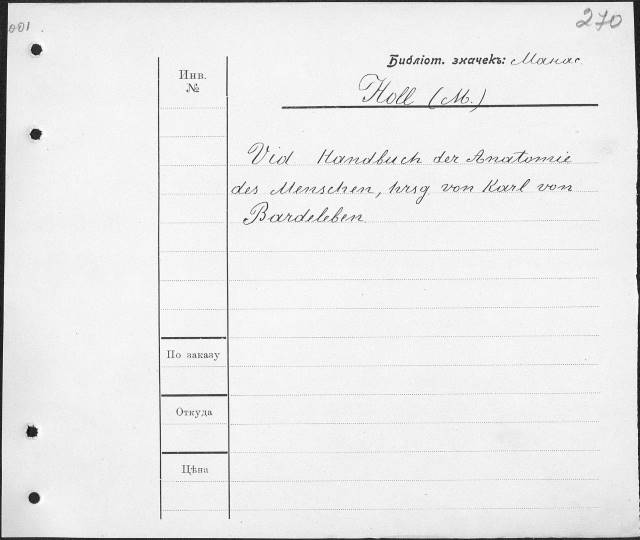 001.
270
Библіот. значекъ: Манас.
Инв.
№
Holl (M.)
Vid Handbuch der Anatomie
des Menschen, hrsg von Karl von
Bardeleben
По заказу
Откуда
Цѣна